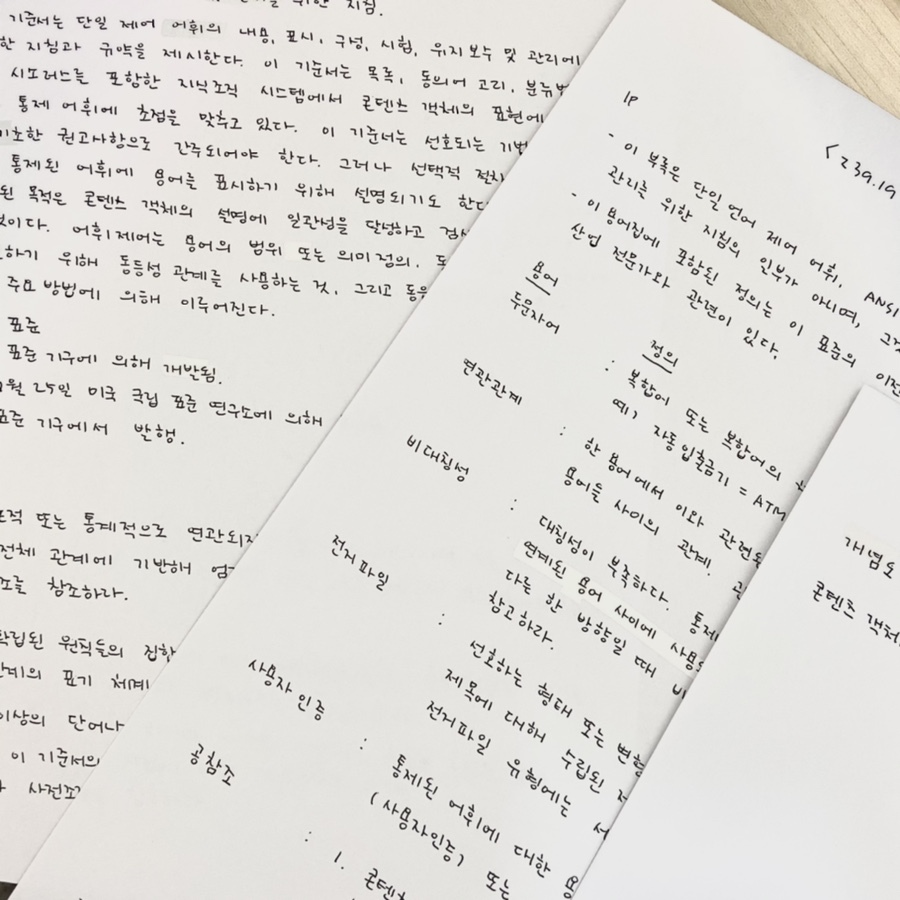 위한 지침.
기준서는 단일 제어 어휘의 내용, 표시, 구성, 시험, 유지보수 및 관리에
한 지침과 규약을 제시한다. 이 기준서는 목록, 동의어 고리, 분류법
시소러스를 포함한 지식조직 시스템에서 콘텐츠 객체의 표현에
통제 어휘에 초점을 맞추고 있다. 이 기준서는 선호되는 기법
기초한 권고사항으로 간주되어야 한다. 그러나 선택적 절차
통제된 어휘에 용어를 표시하기 위해 설명되기도 한다
된 목적은 콘텐츠 객체의 설명에 일관성을 달성하고 검색
것이다. 어휘제어는 용어의 범위 또는 의미 정의, 동
하기 위해 동등성 관계를 사용하는 것, 그리고 동음
주요 방법에 의해 이루어진다.
표준
표준 기구에 의해 개발됨.
월 25일 미국 국립 표준 연구소에 의해
표준 기구에서 발행.
또는 통계적으로 연관되지
전체 관계에 기반해 엄격
조를 참조하라.
확립된 원칙들의 집합
관계의 표기 체계
이상의 단어나
이 기준서의
사전조
1p
< z39.19
- 이 부록은 단일 언어 제어 어휘, ANSI
관리를 위한 지침의 일부가 아니며, 그것
- 이 용어집에 포함된 정의는 이 표준의 이전
산업 전문가와 관련이 있다.
용어 정의
두문자어 : 복합어 또는 복합어의
예, 자동입출금기 = ATM
연관관계 : 한 용어에서 이와 관련된
용어들 사이의 관계.
비대칭성 : 대칭성이 부족하다. 통제
연계된 용어 사이에 사용
다른 한 방향일 때 비
참고하라.
전거파일 : 선호하는 형태 또는 변형
제목에 대해 수립된
전거파일 유형에는
사용자 인증 : 통제된 어휘에 대한 용
(사용자인증) 또는
공참조 : 1. 콘텐츠
개념도
콘텐츠 객체